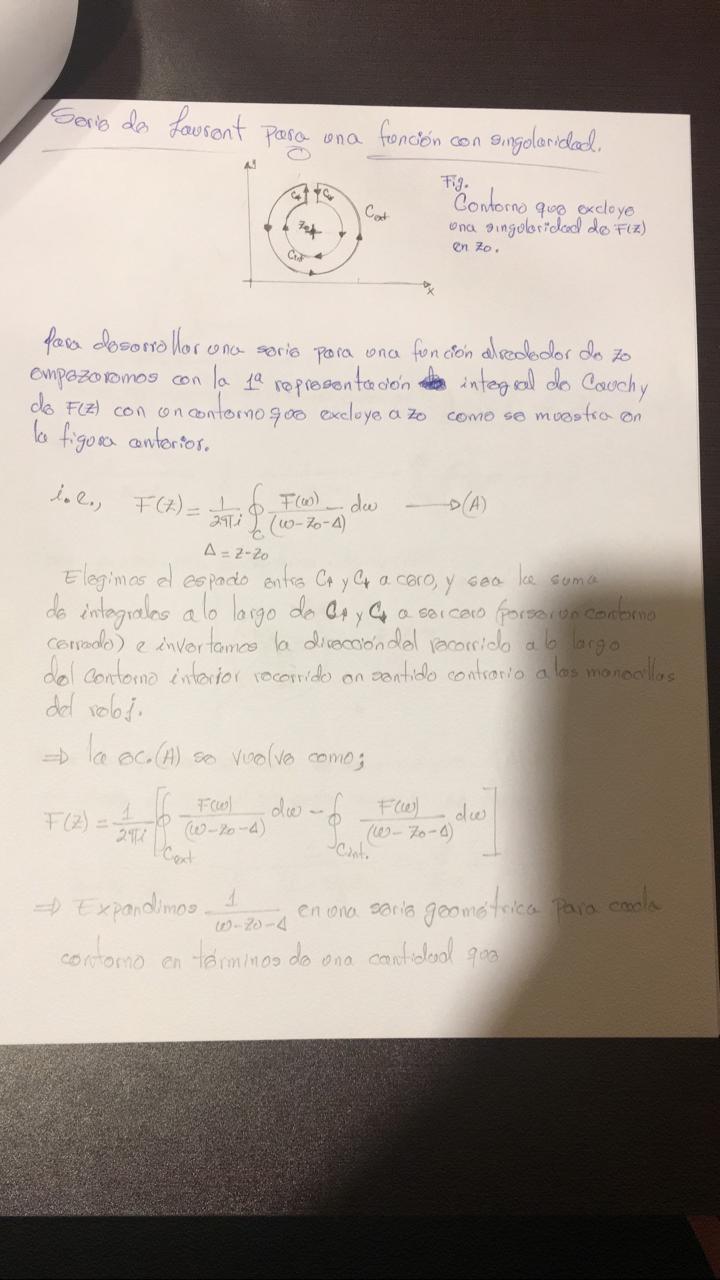 Serie de Laurent para una función con singularidad.
y
C↑ C↓
Cext
z0
Cint
x
Fig.
Contorno que excluye
una singularidad de F(z)
en z0.
Para desarrollar una serie para una función alrededor de z0
empezaremos con la 1ª representación integral de Cauchy
de F(z) con un contorno que excluye a z0 como se muestra en
la figura anterior.
i.e., F(z) = 1/2πi ∮_C F(ω)/(ω-z0-Δ) dω ⟶ (A)
Δ = z-z0
Elegimos el espacio entre C↑ y C↓ a cero, y sea la suma
de integrales a lo largo de C↑ y C↓ a ser cero (por ser un contorno
cerrado) e invertamos la dirección del recorrido a lo largo
del contorno interior recorrido en sentido contrario a las manecillas
del reloj.
⇒ la ec.(A) se vuelve como;
F(z) = 1/2πi [∮_Cext F(ω)/(ω-z0-Δ) dω - ∮_Cint. F(ω)/(ω-z0-Δ) dω]
⇒ Expandimos 1/(ω-z0-Δ) en una serie geométrica para cada
contorno en términos de una cantidad que